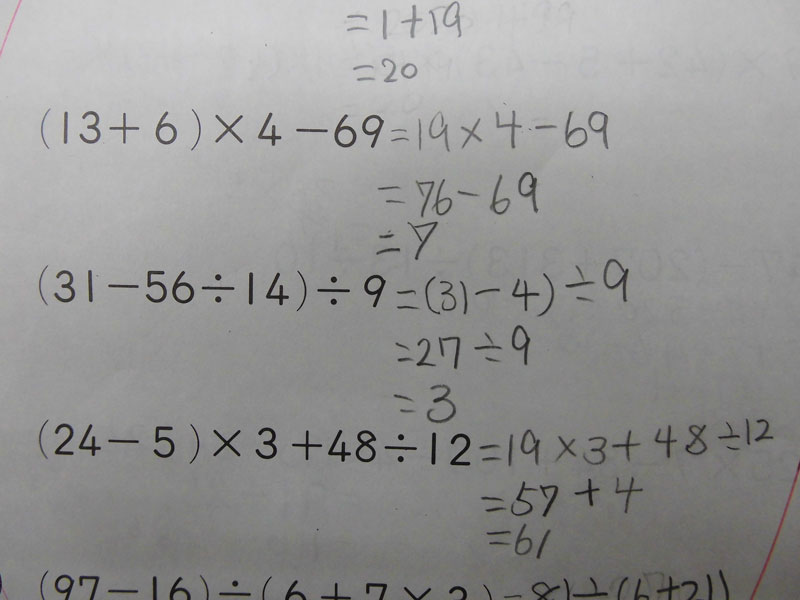 =1+19
=20
(13+6)×4-69=19×4-69
=76-69
=7
(31-56÷14)÷9=(31-4)÷9
=27÷9
=3
(24-5)×3+48÷12=19×3+48÷12
=57+4
=61
(97-16)÷(6+7×3)=81÷(6+21)